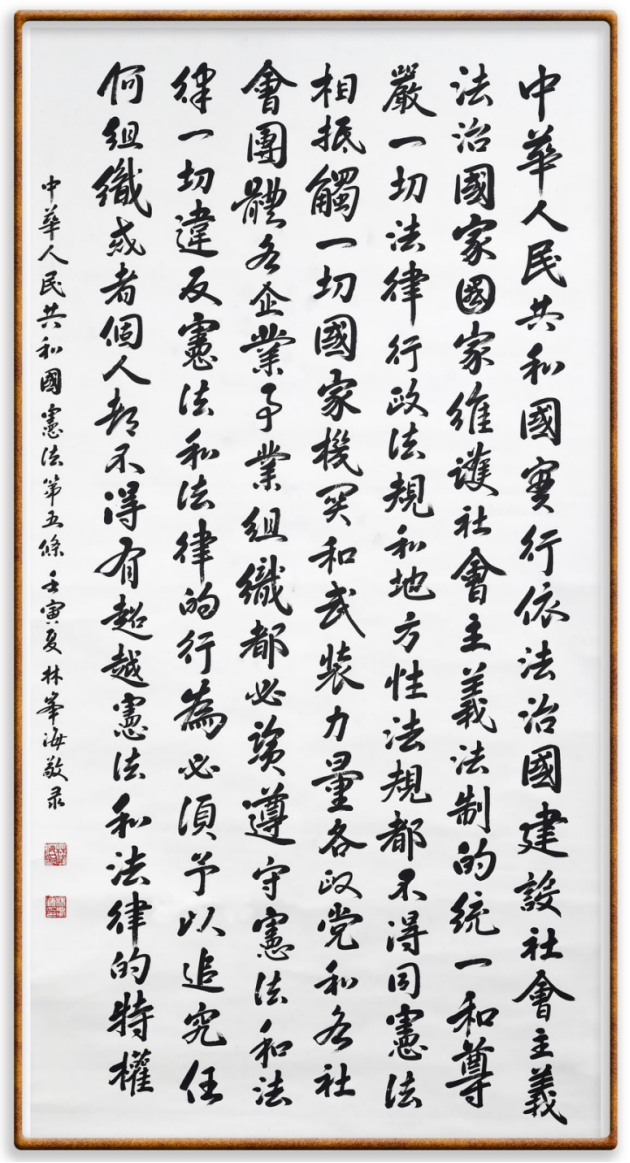 中華人民共和國實行依法治國建設社會主義
法治國家國家維護社會主義法制的統一和尊
嚴一切法律行政法規和地方性法規都不得同憲法
相抵觸一切國家機関和武裝力量各政党和各社
會團體各企業事業組織都必須遵守憲法和法
律一切違反憲法和法律的行為必須予以追究任
何組織或者個人都不得有超越憲法和法律的特權
中華人民共和國憲法第五條 壬寅夏 林峯海敬录